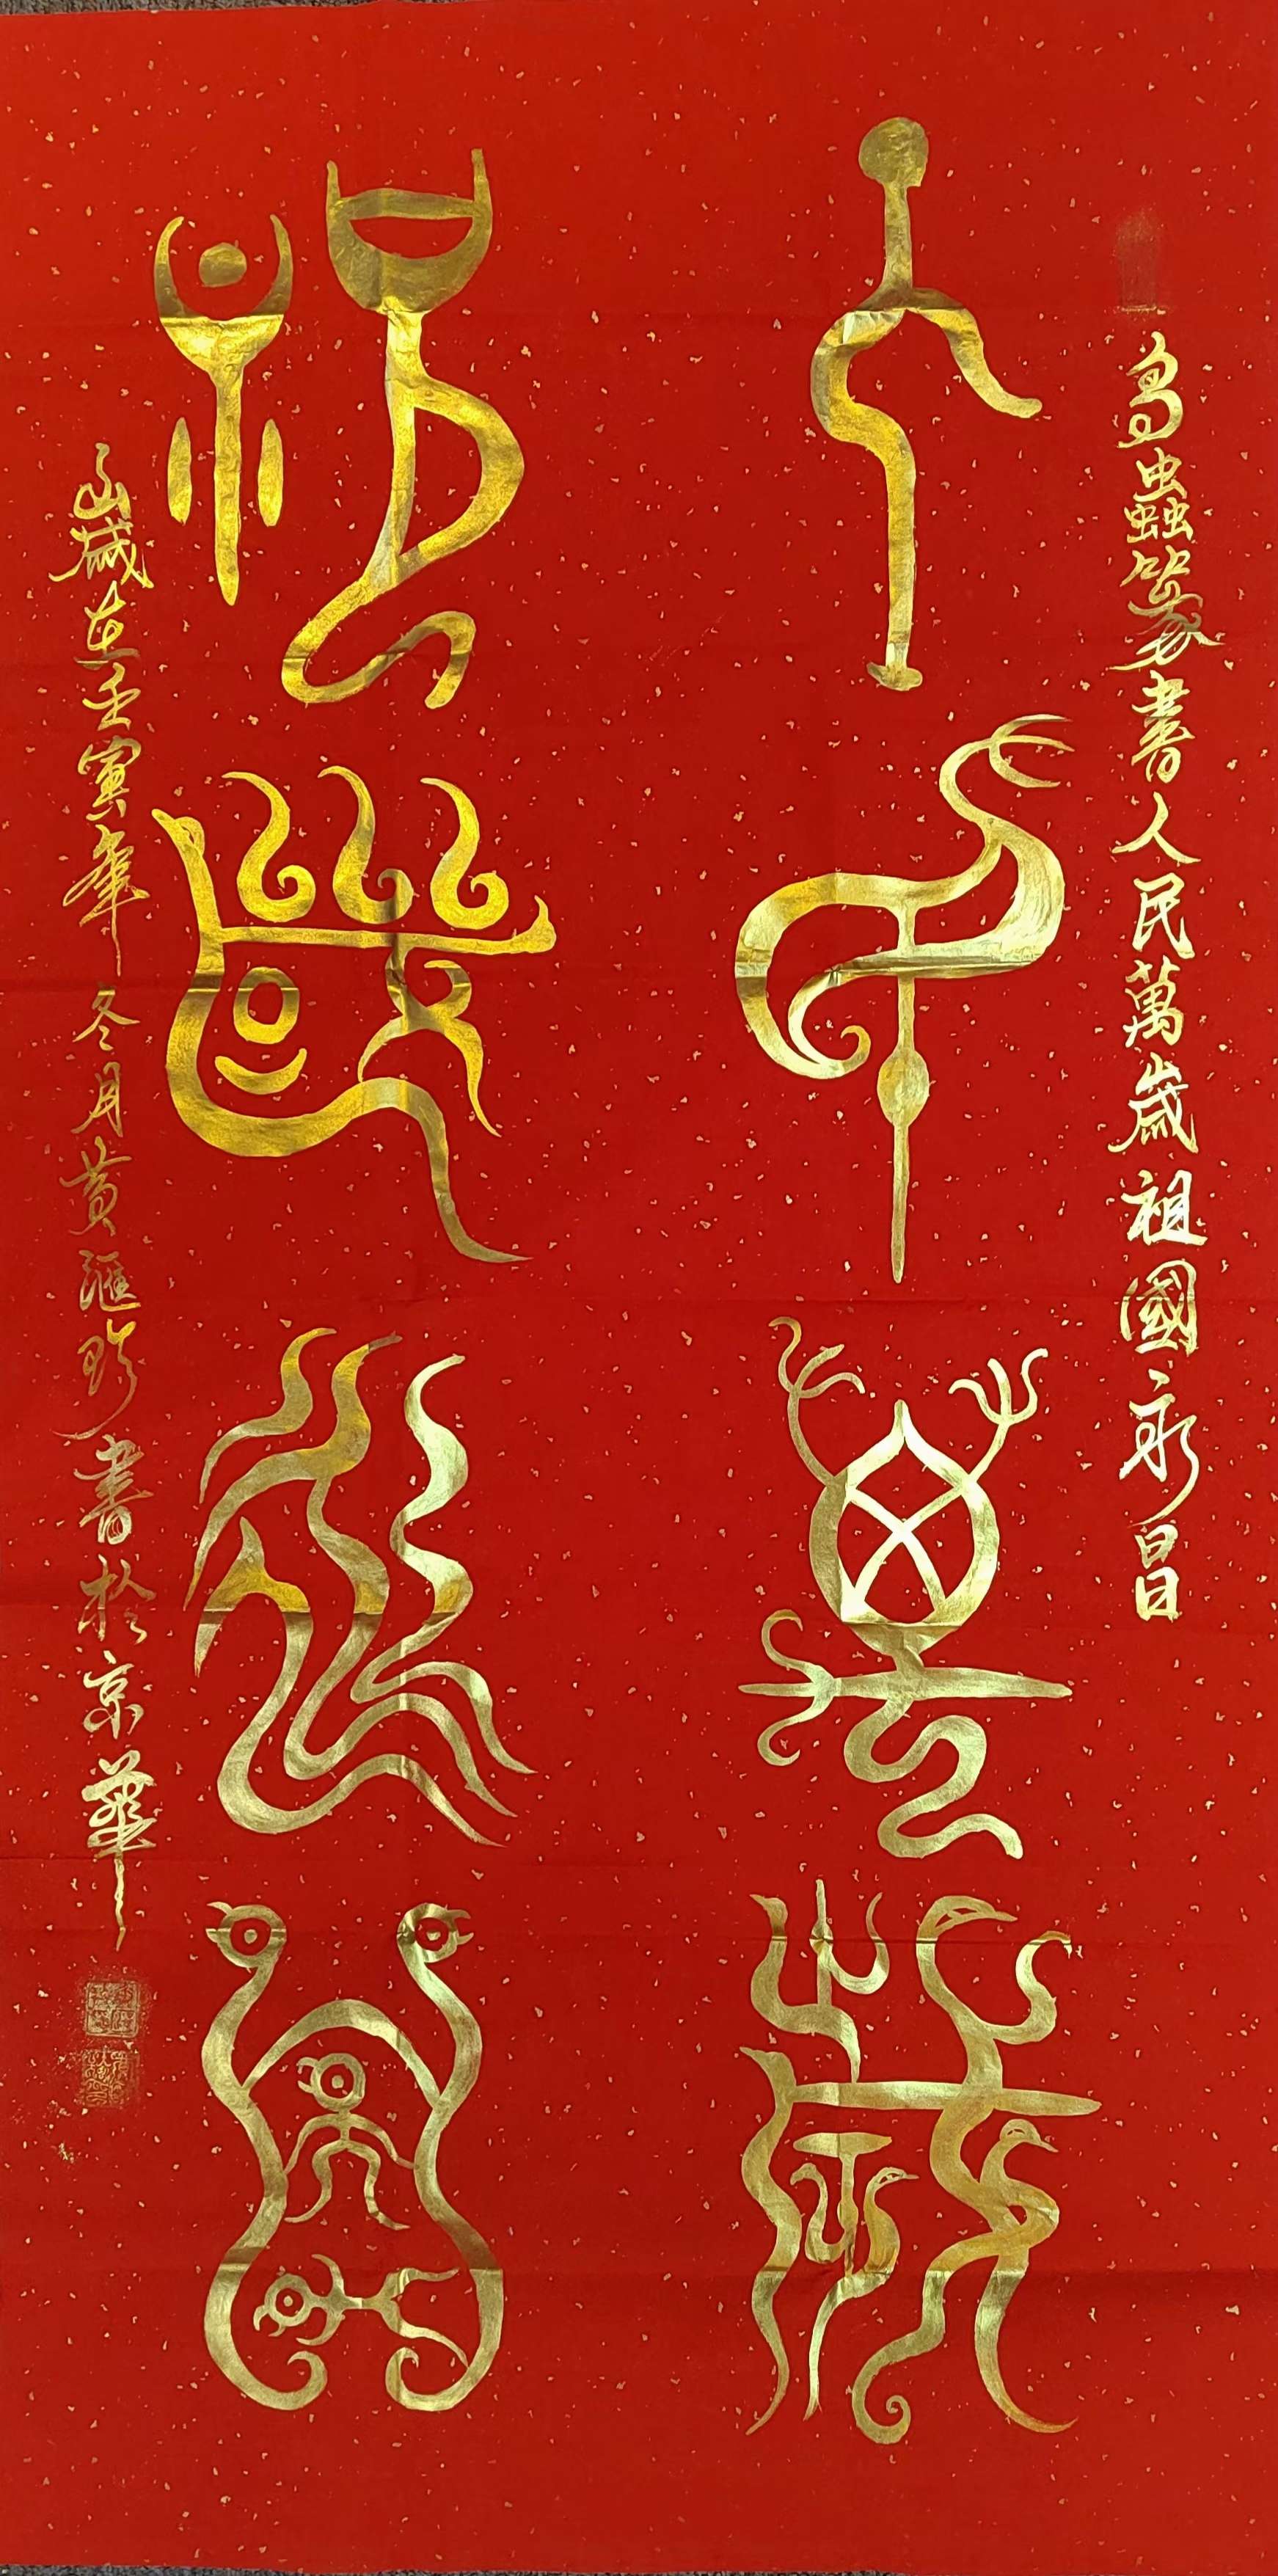 鳥蟲篆書人民萬歲祖國永昌
人民萬歲
祖國永昌
歲在壬寅年冬月黃滙珍書於京華